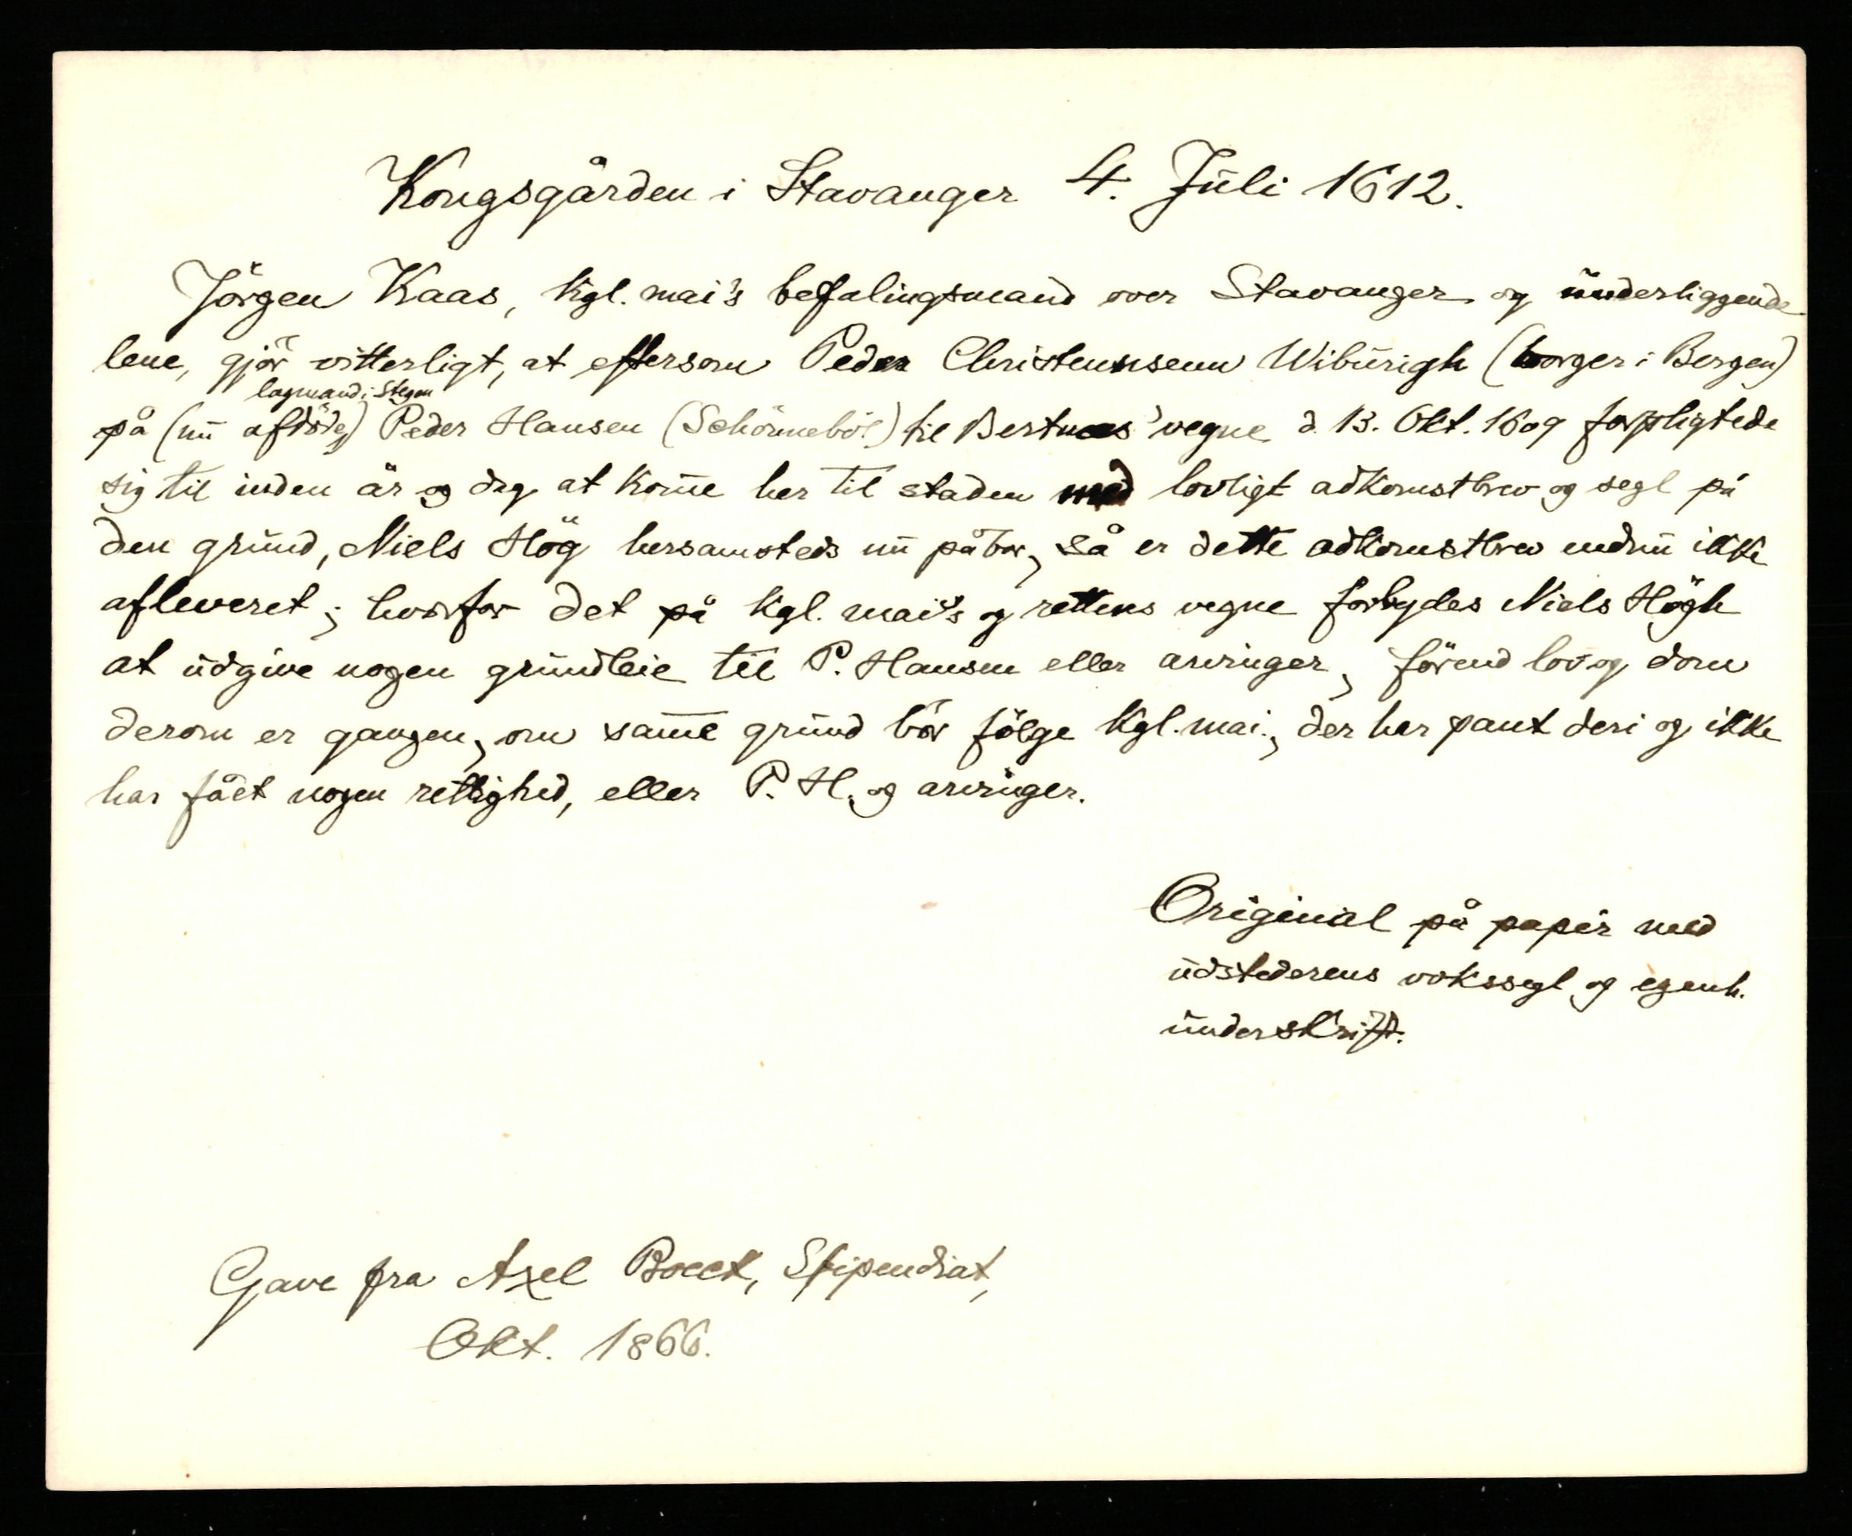 Kongsgården i Stavanger 4. Juli 1612.
Jörgen Kaas, kgl. mai's befalingsmand over Stavanger og underliggende
lene, gjör vitterligt, at eftersom Peder Christennsenn Wiburigh (borger i Bergen)
lagmand i Stegen
på (nu afdöde) Peder Hansen (Schönneböl) til Bertnes' vegne d. 13. Okt. 1609 forpligtede
sig til inden år og dag at kom̅e her til staden med lovligt adkomstbrev og segl på
den grund, Niels Hög hersammesteds nu påbor, så er dette adkomstbrev endnu ikke
afleveret; hvorfor det på kgl. mai's og rettens vegne forbydes Niels Högh
at udgive nogen grundleie til P. Hansen eller arvinger, förend lov og dom
derom er gangen, om sam̅e grund bör fölge kgl. mai., der har pant deri og ikke
har fået nogen rettighed, eller P. H. og arvinger.
Original på papir med
udstederens vokssegl og egenh.
underskrift.
Gave fra Axel Boeck, Stipendiat,
Okt. 1866.